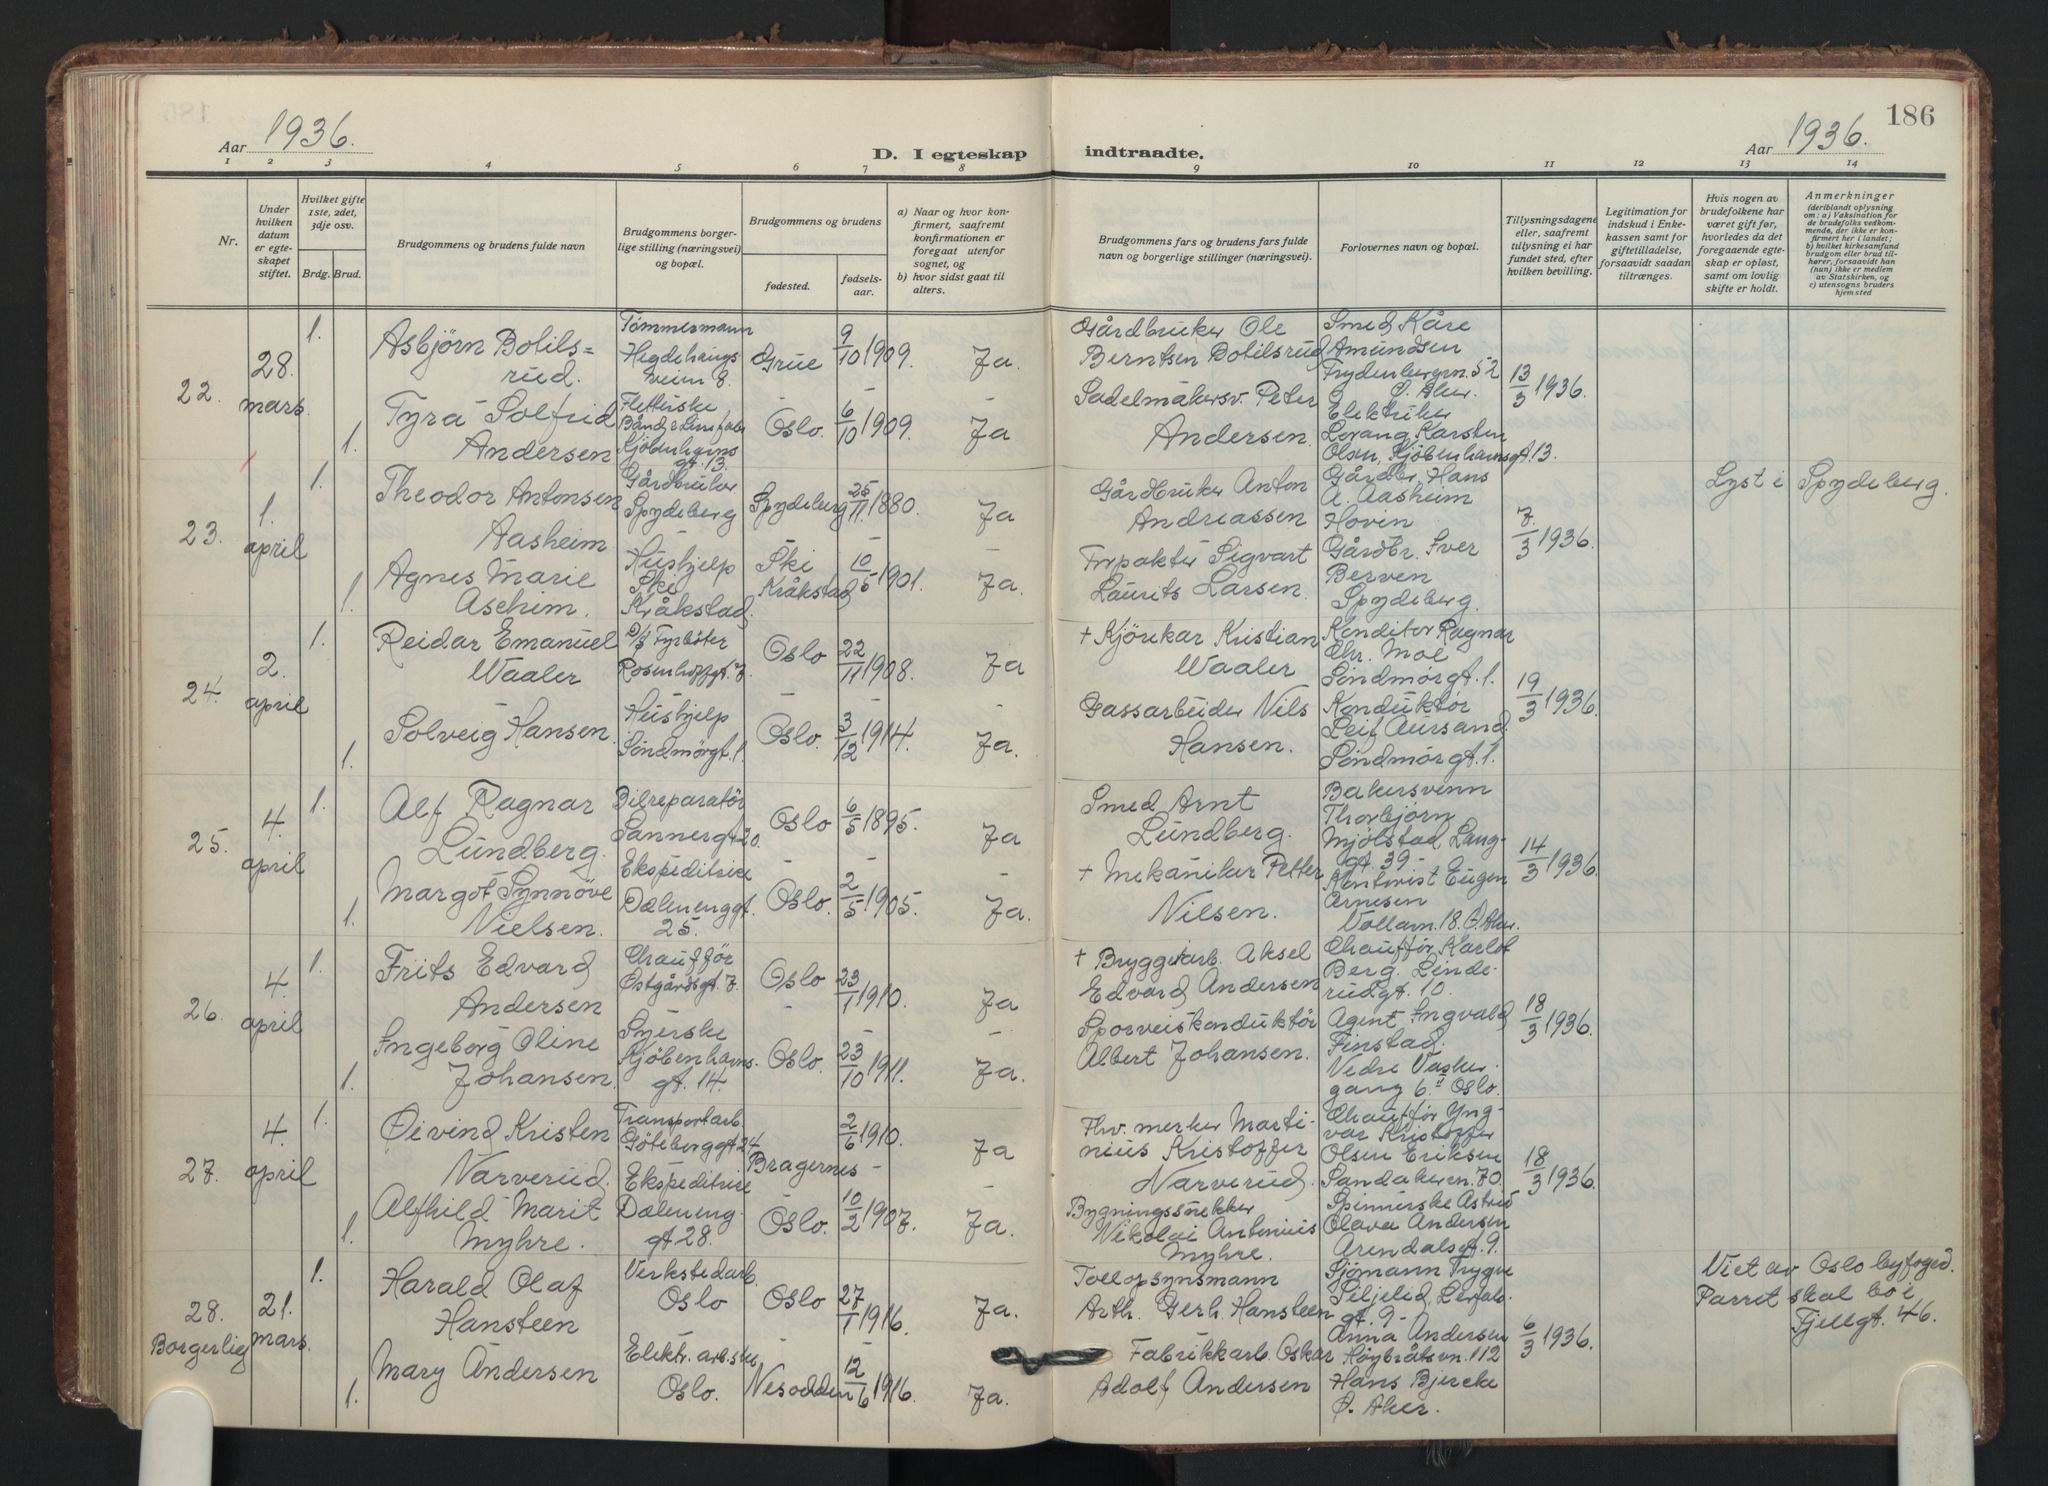 186
Aar 1936. D. I egteskap indtraadte. Aar 1936.
1 2 3 4 5 6 7 8 9 10 11 12 13 14
Nr.
Under hvilken datum er egteskapet stiftet.
Hvilket gifte 1ste, 2det, 3dje osv.
Brdg. Brud.
Brudgommens og brudens fulde navn
Brudgommens borgerlige stilling (næringsvei) og bopæl.
Brudgommens og brudens
fødested. fødselsaar.
a) Naar og hvor konfirmert, saafremt konfirmationen er foregaat utenfor sognet, og
b) hvor sidst gaat til alters.
Brudgommens fars og brudens fars fulde navn og borgerlige stillinger (næringsvei).
Forlovernes navn og bopæl.
Tillysningsdagene eller, saafremt tillysning ei har fundet sted, efter hvilken bevilling.
Legitimation for indskud i Enkekassen samt for giftetilladelse, forsaavidt saadan tiltrænges.
Hvis nogen av brudefolkene har været gift før, hvorledes da det foregaaende egteskap er opløst, samt om lovlig skifte er holdt.
Anmerkninger
(deriblandt oplysning om: a) Vaksination for de brudefolks vedkommende, der ikke er konfirmert her i landet; b) hvilket kirkesamfund brudgom eller brud tilhører, forsaavidt han (hun) ikke er medlem av Statskirken, og c) utensogns bruders hjemsted
22. 28. mars
1. Asbjørn Botilsrud.
Tømmermann Hegdehaugsveien 8.
Grue 9/10 1909. Ja.
Gårdbruker Ole Berntsen Botilsrud
Smed Kåre Amundsen Frydenbergvn. 52 Ø. Aker.
13/3 1936.
1. Tyra Solfrid Andersen
Fletterske Bånd & Lisefabr. Kjöbenhavns gt. 13.
Oslo. 6/10 1909. Ja
Sadelmakersv. Peter Andersen.
Elektriker Lorang Karsten Olsen, Kjöbenhavnsgt. 13.
23. 1. april
1. Theodor Antonsen Aasheim
Gårdbruker Spydeberg
Spydeberg 25/11 1880. Ja
Gårdbruker Anton Andreassen
Gårdbr. Hans A. Aasheim Hovin
7/3 1936.
Lyst i Spydeberg.
1. Agnes Marie Aseheim.
Hushjelp Ski Kråkstad.
Ski Kråkstad 10/5 1901. Ja.
Forpakter Sigvart Laurits Larsen.
Gårdbr. Iver Berven Spydeberg.
24. 2. april
1. Reidar Emanuel Waaler
D/S Fyrböter Rosenhoffgt. 7.
Oslo 22/11 1908. Ja
+ Kjörekar Kristian Waaler
Konditor Ragnar Chr. Moe Söndmörgt. 1.
19/3 1936.
1. Solveig Hansen.
Hushjelp Söndmörgt. 1.
Oslo. 3/12 1914. Ja.
Gassarbeider Nils Hansen.
Konduktör Leif Aursand. Söndmörgt. 1.
25. 4. april
1. Alf Ragnar Lundberg.
Bilreparatör Sannergt 20.
Oslo 6/5 1895. Ja
Smed Arnt Lundberg.
Bakersvenn Thorbjörn Mjölstad Langgt. 39 -
14/3 1936.
1. Margot Synnöve Nielsen.
Ekspeditrise Dælenenggt. 25.
Oslo. 2/5 1905. Ja.
+ Mekaniker Petter Nilsen.
Kontorist Eugen Arnesen Vollavn. 18. Ø. Aker.
26. 4. april
1. Frits Edvard Andersen
Chaufför Östgårdsgt. 7.
Oslo 23/1 1910. Ja
+ Bryggearb. Aksel Edvard Andersen
Chaufför Karlot Berg. Linderudgt. 10.
18/3 1936.
1. Ingeborg Oline Johansen.
Syerske Kjöbenhavns-gt. 14.
Oslo. 23/10 1911. Ja.
Sporveiskonduktör Albert Johansen.
Agent Ingvald Finstad. Nedre Vaskergang 6 II Oslo.
27. 4. april
1. Øivind Kristen Narverud.
Transportarb. Göteborggt 24
Bragernes 2/6 1910. Ja
Thv. merker Martinius Kristoffer Narverud.
Chaufför Yngvar Kristoffer Olsen Eriksen Sandakervn. 70.
18/3 1936.
1. Alfhild Marit Myhre.
Ekspeditrise Dælenenggt 28.
Oslo. 10/2 1907. Ja.
Bygningssnekker Nikolai Antonius Myhre.
Spinnerske Astrid Olava Andersen Arendalsgt. 9.
28. Borgerlig 21. mars.
1. Harald Olaf Hansteen
Verkstedarb. Oslo
Oslo 27/1 1916. Ja.
Tollopsynsmann Arth. Gerh. Hansteen
Sjömann Trygve Siljelid, Leirfalsgt. 9 -
6/3 1936.
Viet av Oslo byfoged. Parret skal bo i Fjellgt. 46.
1. Mary Andersen
Elektr. arb.ske Oslo.
Nesodden 12/6 1916. Ja.
Fabrikkarb. Oskar Adolf Andersen
Anna Andersen Höybråtvn. 112 Hans Bjercke Ø. Aker.